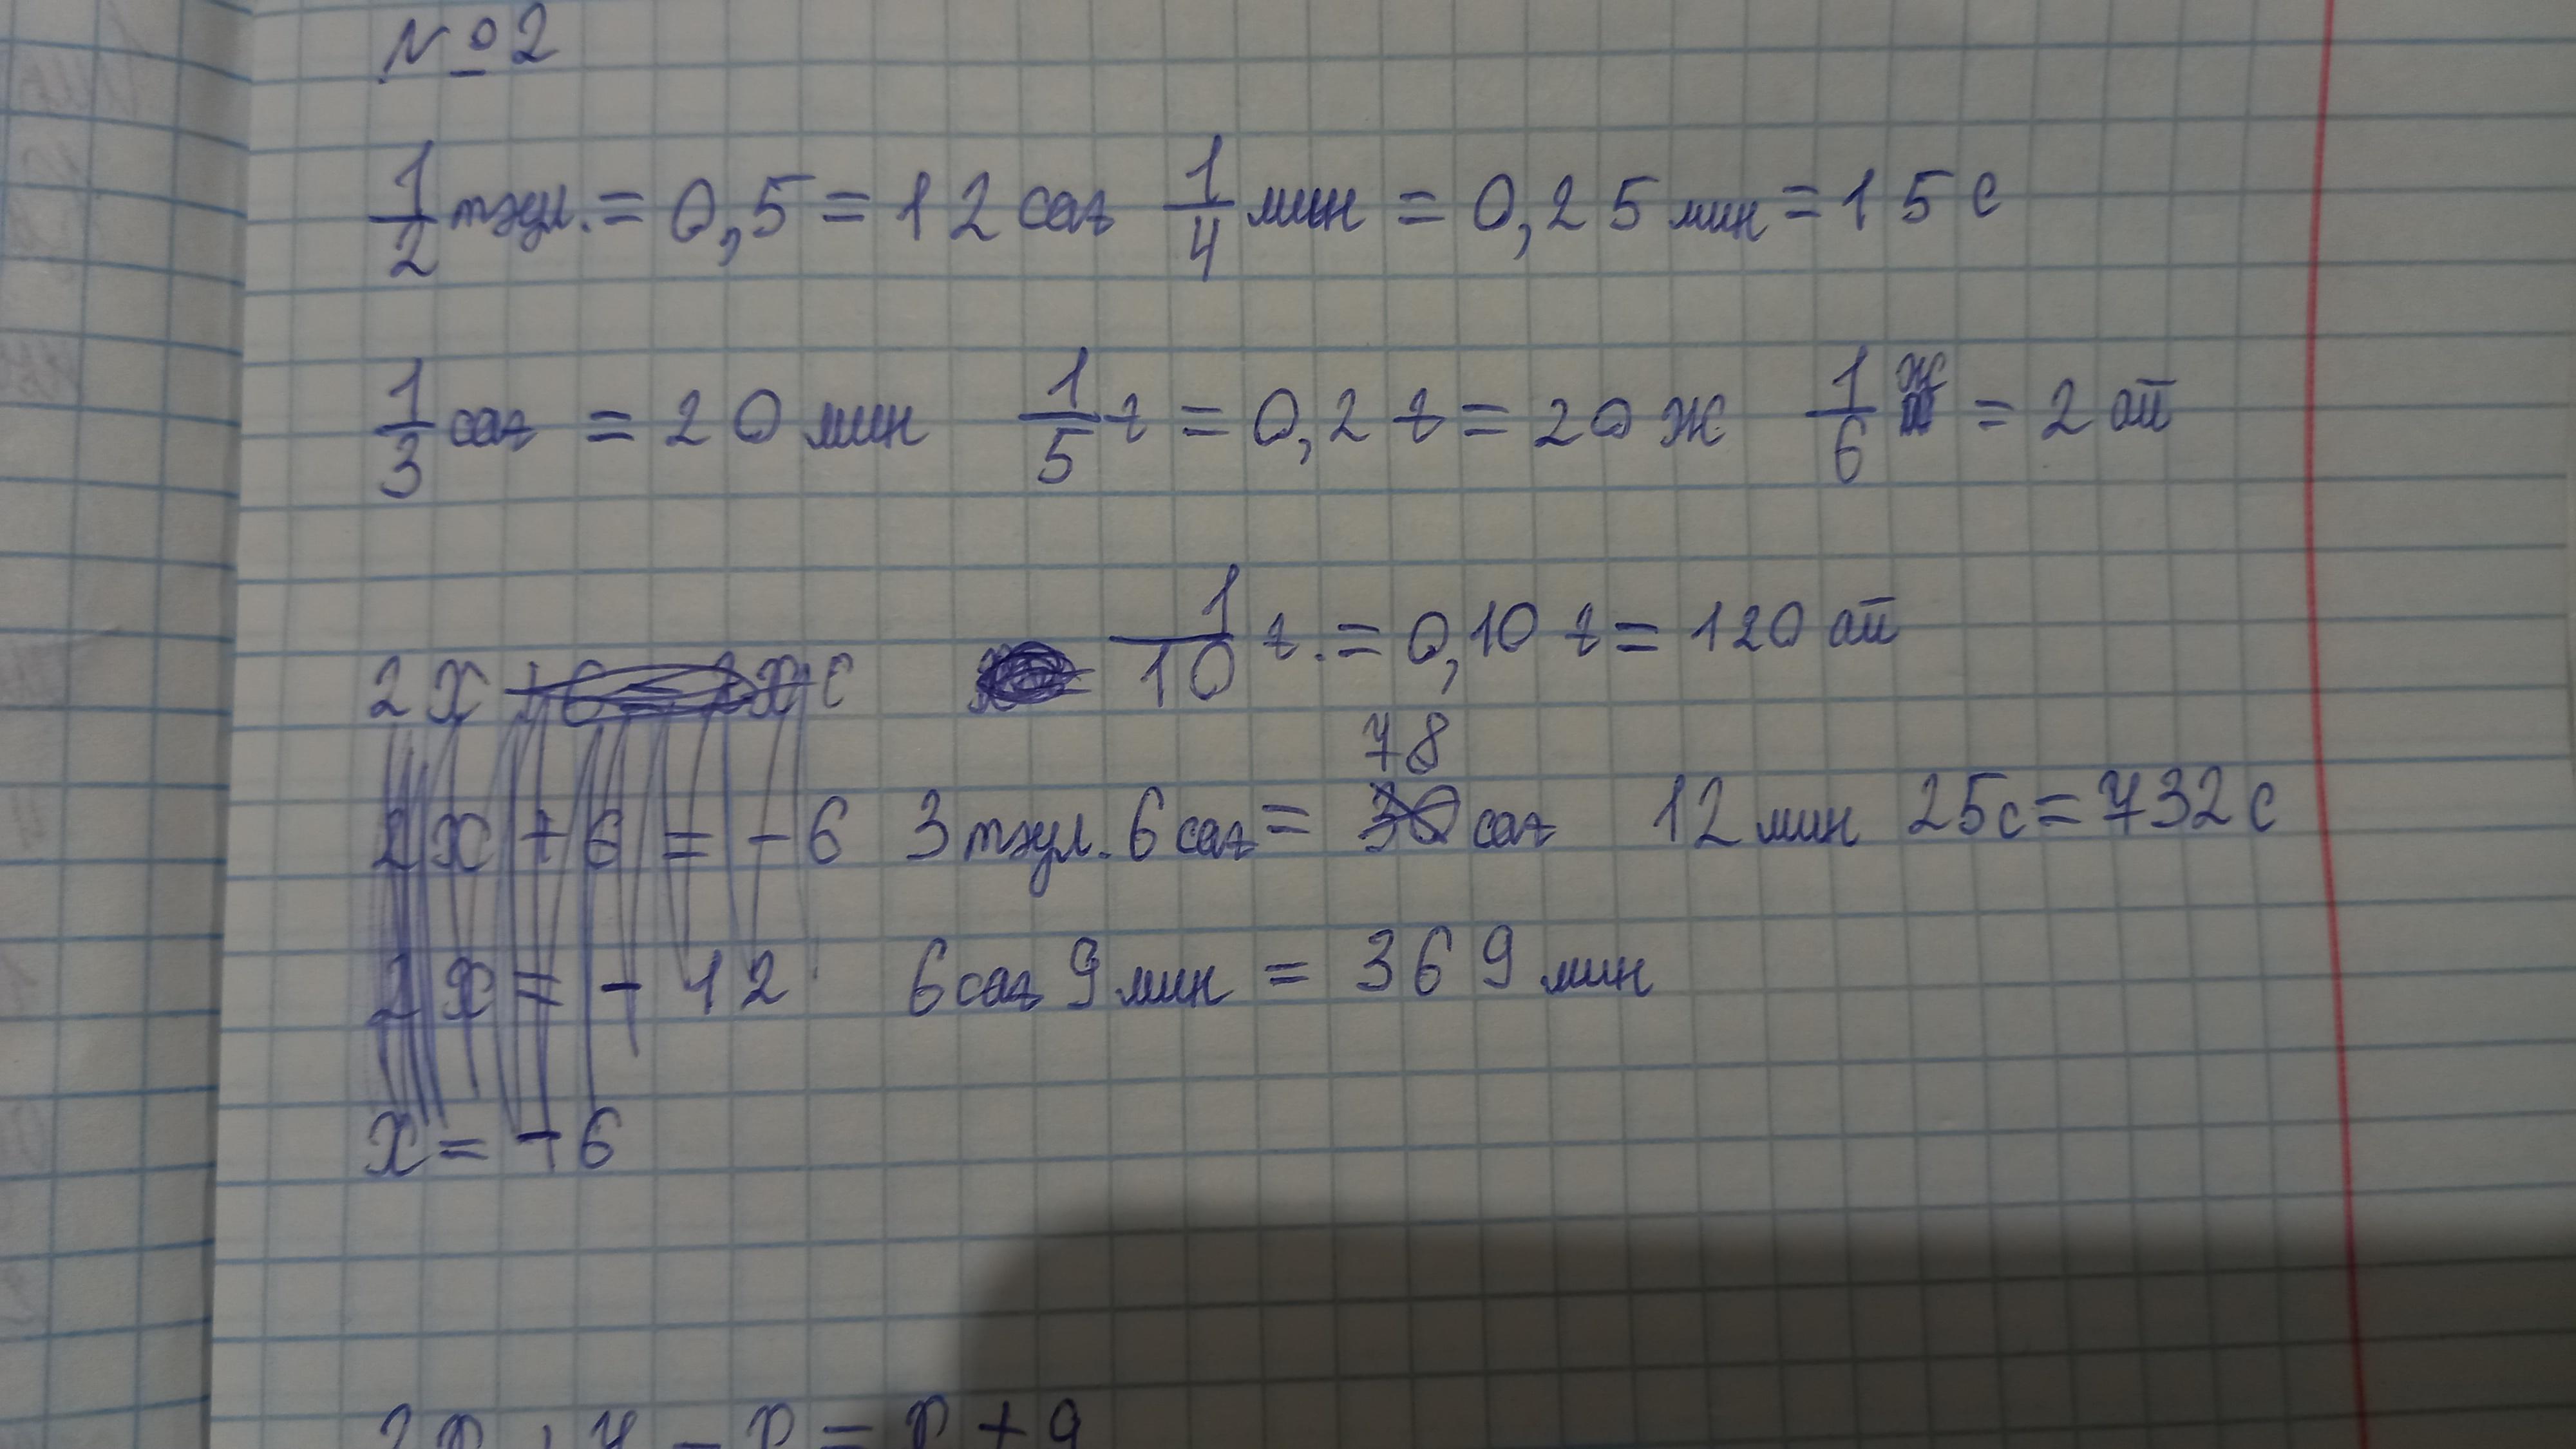 №2
1/2 тәул. = 0,5 = 12 сағ 1/4 мин = 0,25 мин = 15 с
1/3 сағ = 20 мин 1/5 ғ = 0,2 ғ = 20 ж 1/6 ж = 2 ай
1/10 ғ. = 0,10 ғ = 120 ай
2x
78
2x + 6 = - 6 3 тәул. 6 сағ = 30 сағ 12 мин 25 с = 732 с
2x = - 12 6 сағ 9 мин = 369 мин
x = - 6